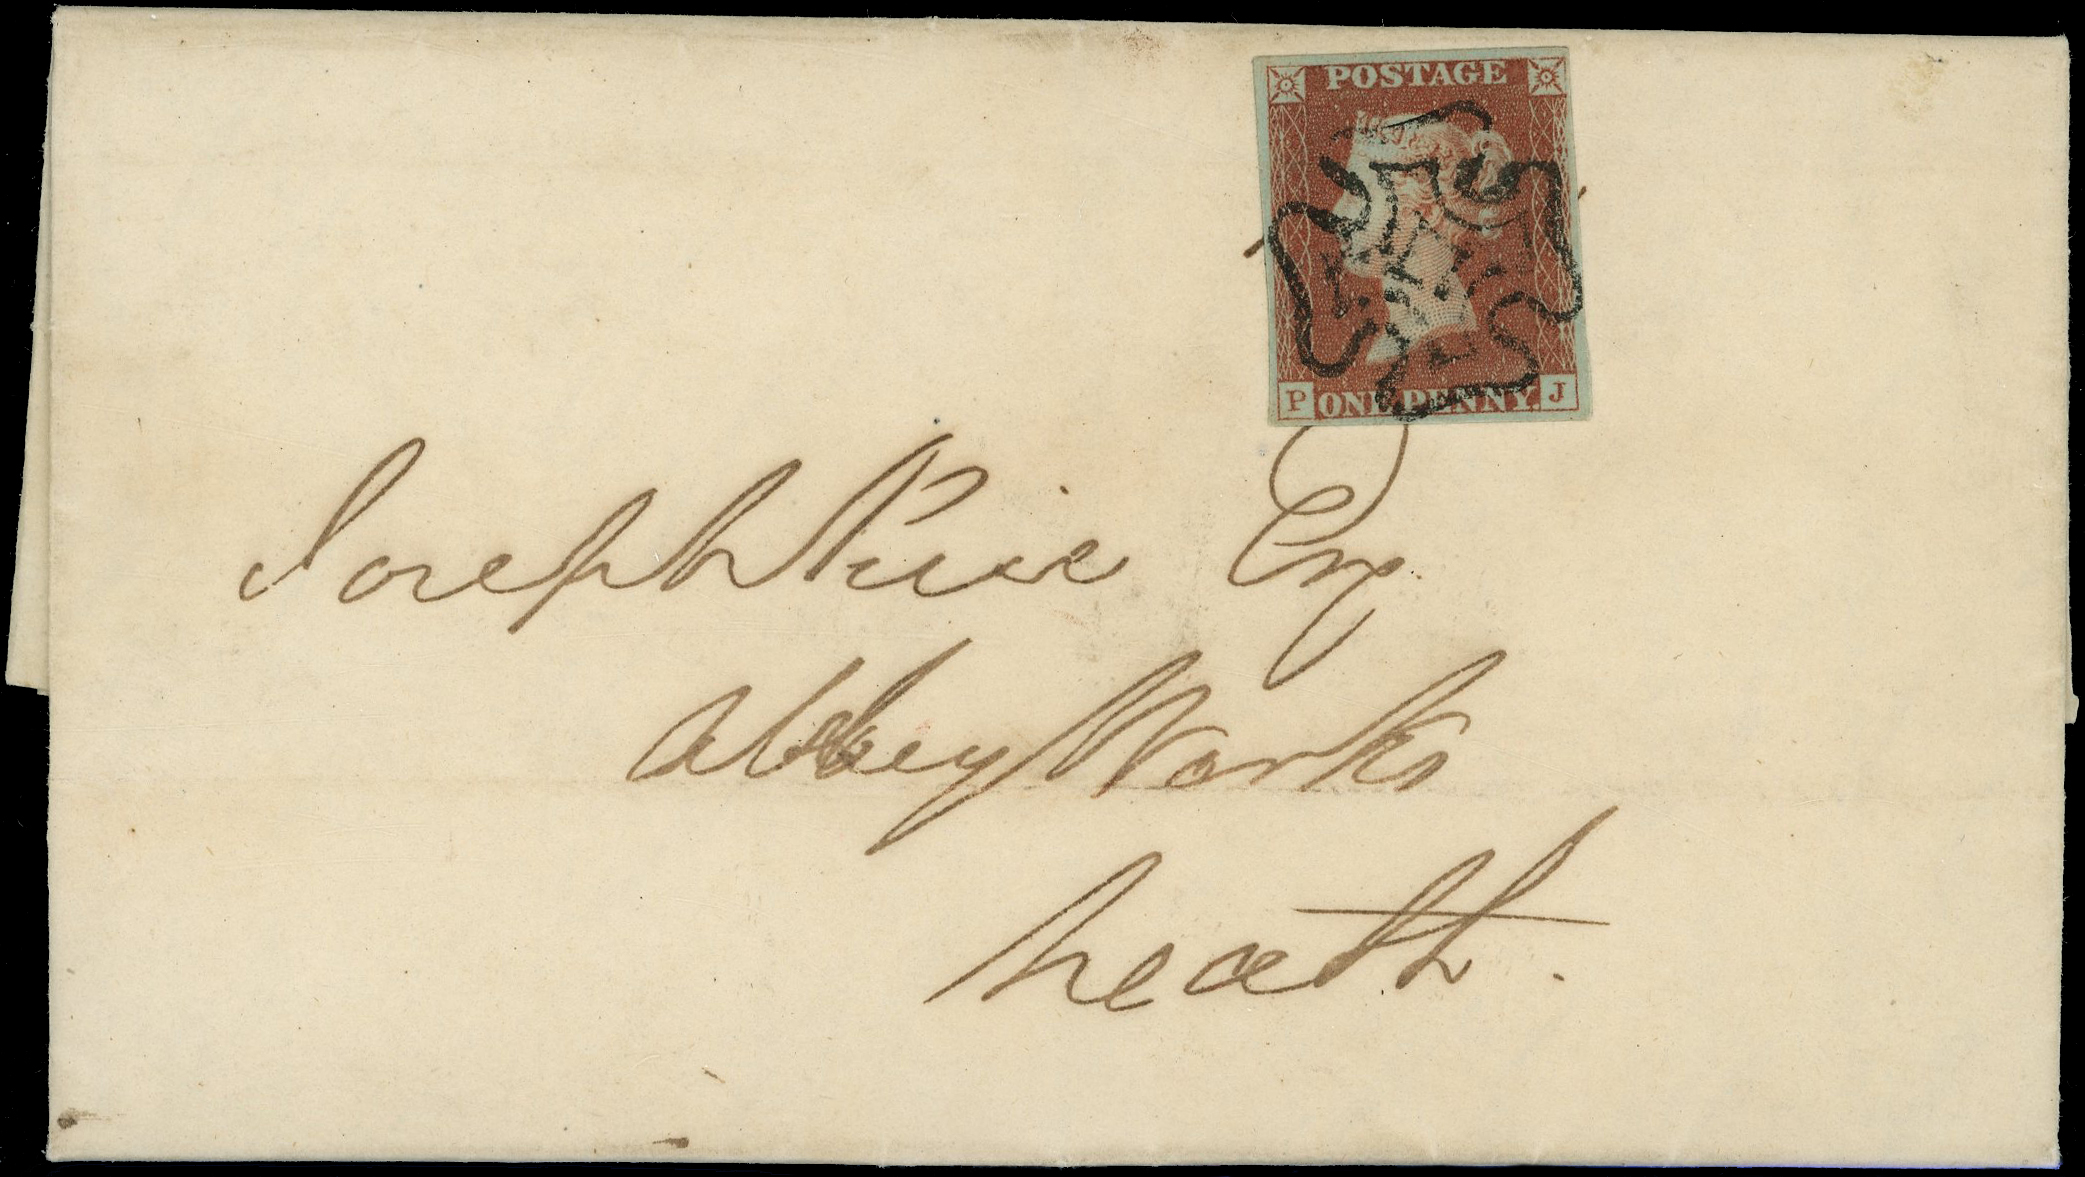 POSTAGE
P ONE PENNY. J
Joseph Price Esq.
Abbey Works
Neath.